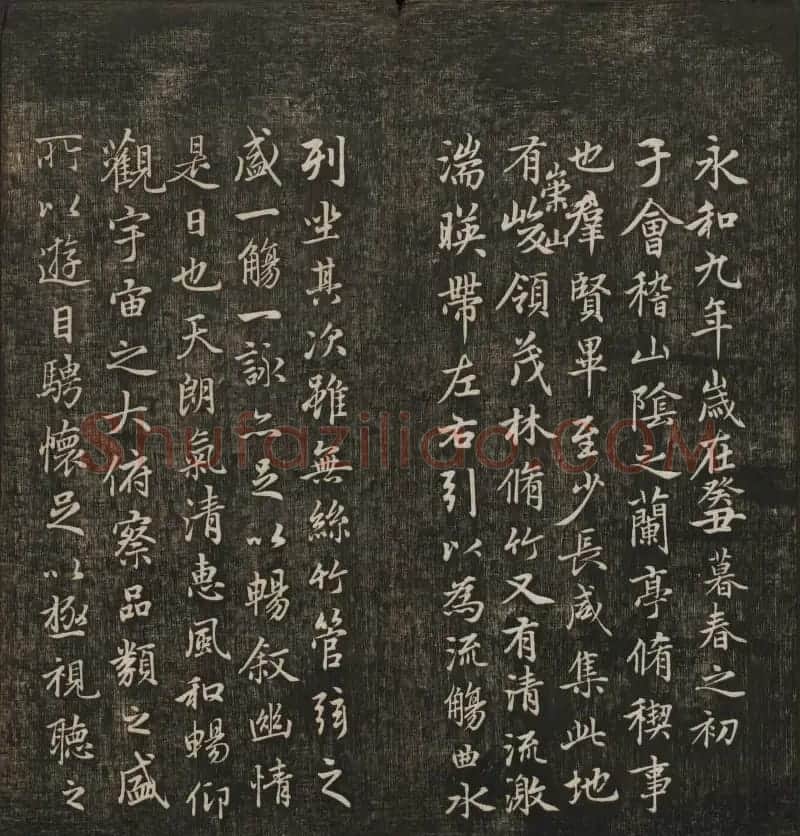 永和九年歲在癸丑暮春之初會
于會稽山陰之蘭亭脩稧事
也羣賢畢至少長咸集此地
有崇山峻領茂林脩竹又有清流激
湍暎帶左右引以為流觴曲水
列坐其次雖無絲竹管弦之
盛一觴一詠亦足以暢叙幽情
是日也天朗氣清惠風和暢仰
觀宇宙之大俯察品類之盛
所以遊目騁懷足以極視聽之
Shufaziliao.COM